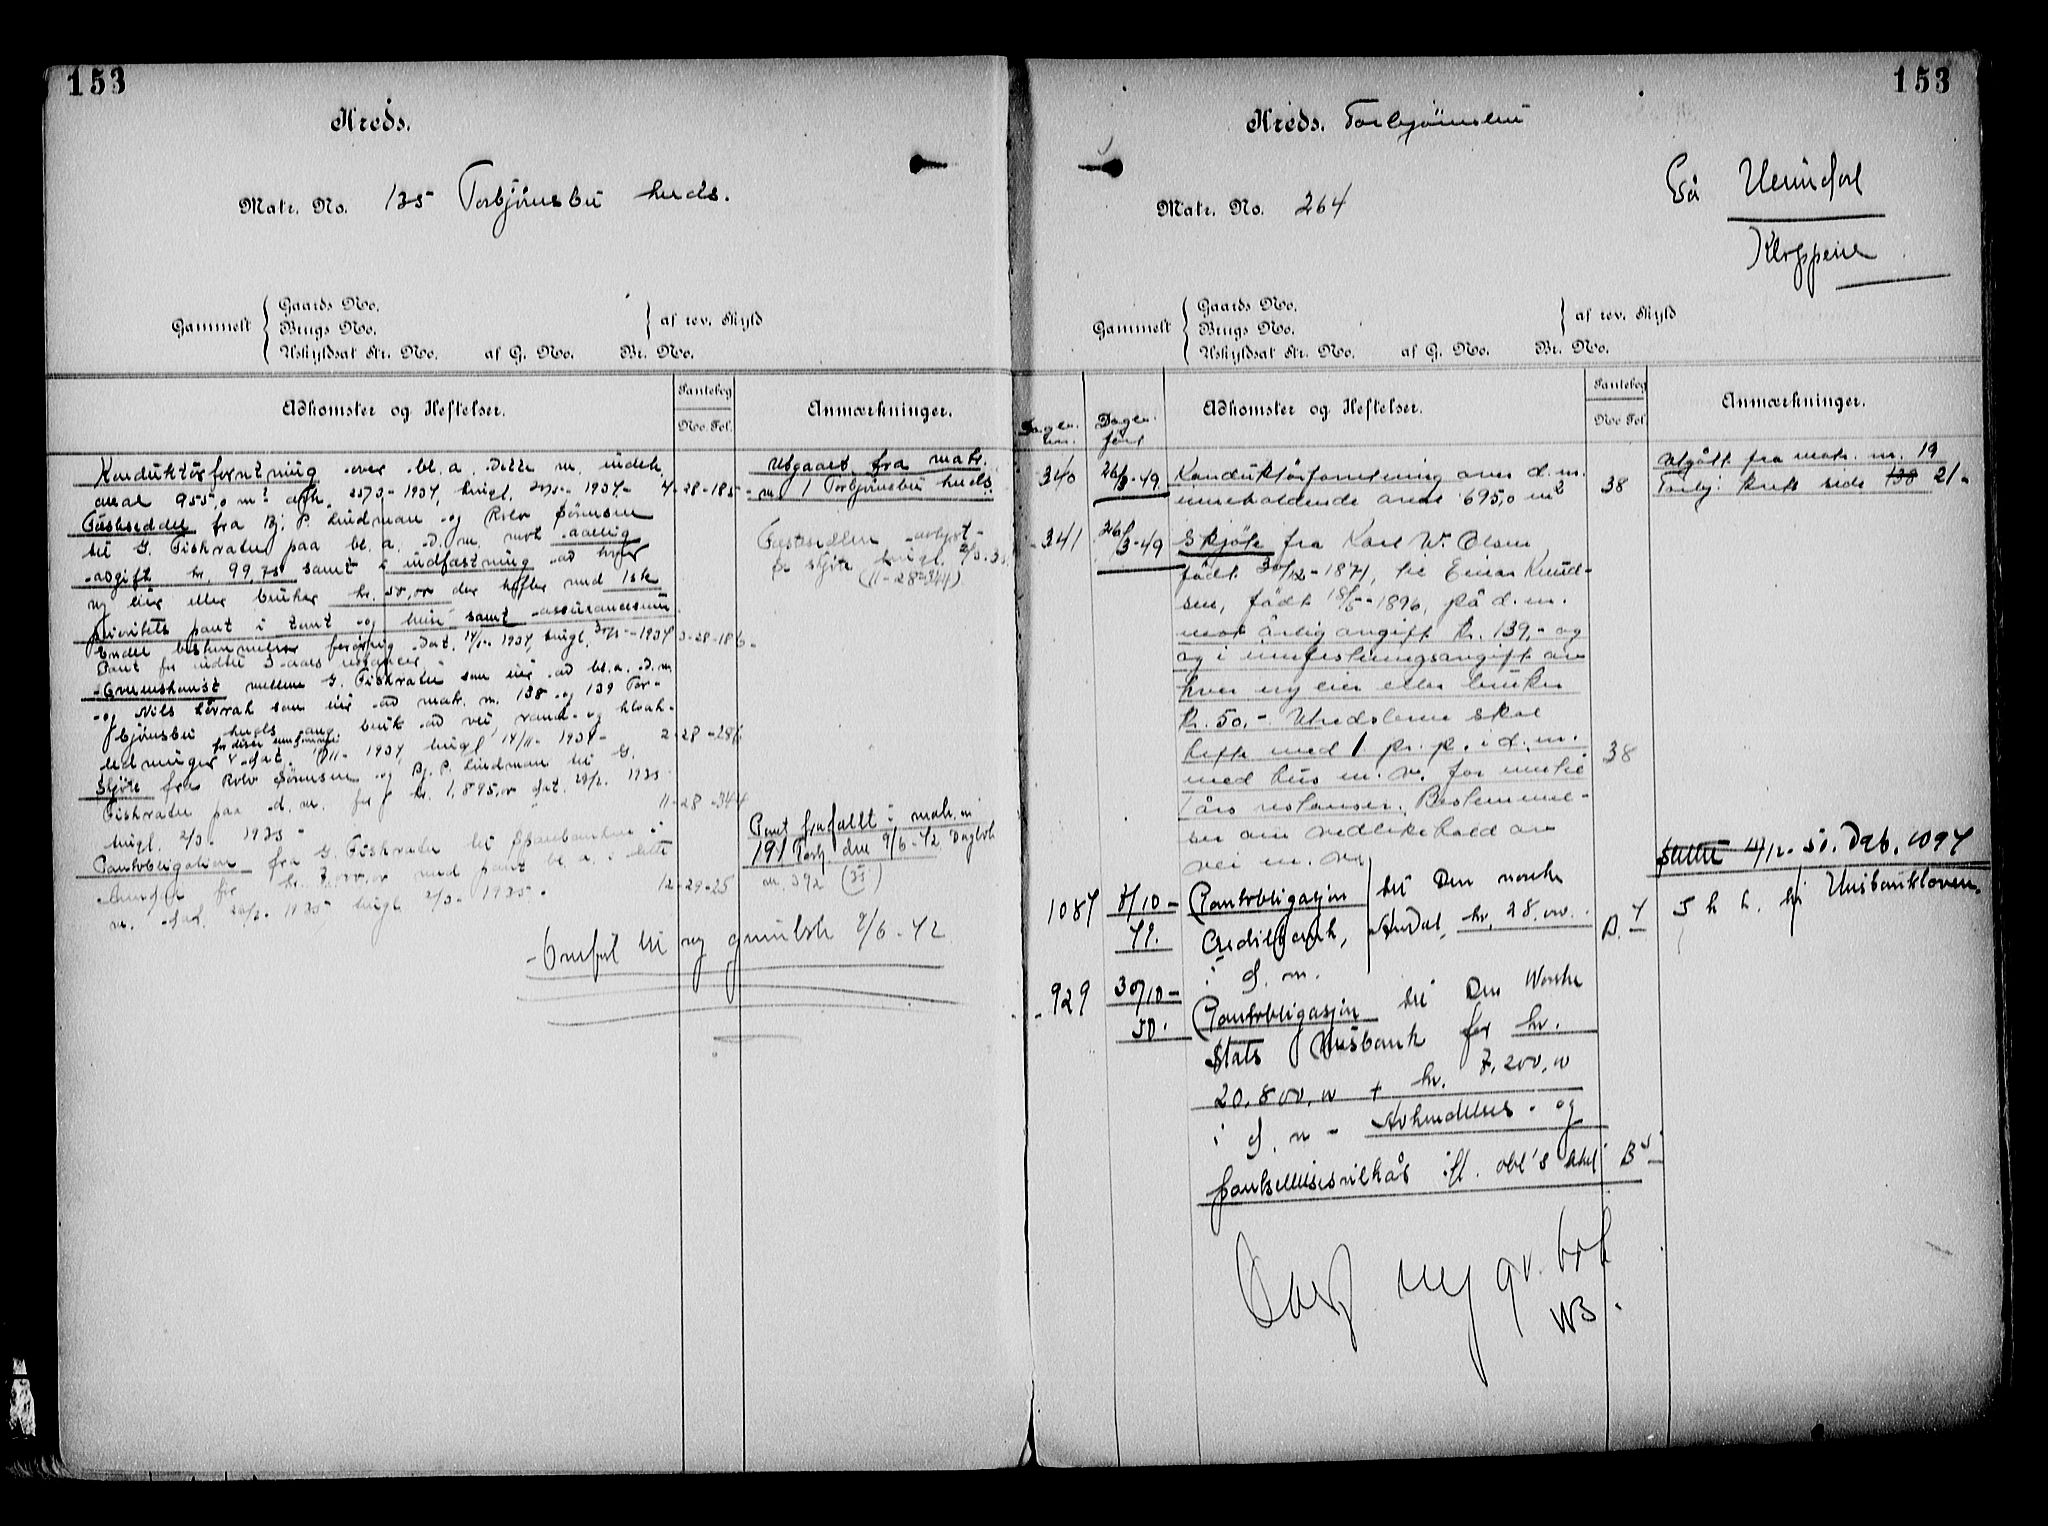 153
Kreds.
Matr. No. 135 Torbjørnsbu kreds.
Gammelt
Gaards No.
Brugs No.
Uskyldsat Str. No. af G. No. Br. No.
af rev. Skyld
Adkomster og Heftelser.
Pantebog
No. Fol.
Anmærkninger.
Konduktørforretning over bl. a. dette m. indeh.
areal 955,0 m² avh. 1934, tingl. 1934 4-28-185
Festeseddel fra Bj. P. Lindman og Rolv Sørensen
til G. Fiskvatn paa bl. a. d. m. mot aarlig
avgift kr. 99,75 samt i indfæstning ad hver
ny eier eller bruker kr. 50,00 der hefter med 1ste
prioritets pant i tomt og hus samt assurancesum
Endel bestemmelser forøvrig. Dat. 14/5-1934, tingl. 1934 3-28-186
Pant for indtil 3 aars restancer.
Overenskomst mellem G. Fiskvatn som eier ad bl. a. d. m
og Nils som eier ad matr. nr. 138 og 139 Tor-
bjørnsbu kreds ang. bruk ad vei vand- og kloak-
ledninger dat. 1934 tingl. 14/11-1934 2-28-286
Skjøte fra Rolv Sørensen og Bj. P. Lindman til G.
Fiskvatn paa d. m. for kr. 1,895,00 dat. 1935
tingl. 2/3 1935 11-28-344
Pantobligation fra G. Fiskvatn til Sparebanken i
Arendal for kr. 7,000,00 med pant bl. a. i dette
m. dat. 1935 tingl. 2/3-1935. 12-29-25
Utgaaet fra matr.
nr 1 Torbjørnsbu kreds
Festeseddelen avlyst
p. skjøte tingl. 2/3-35
(11-28-344)
Pant frafallt i matr. nr
191 Torbj. den 9/6-42 Dagbok
nr. 392 (35)
Overført til ny grunnbok 9/6-42
153
Kreds. Torbjørnsbu
Matr. No. 264
Gå Heimdal
Kloppene
Gammelt
Gaards No.
Brugs No.
Uskyldsat Str. No. af G. No. Br. No.
af rev. Skyld
Dagb. nr.
Dagb. ført
Adkomster og Heftelser.
Pantebog
No. Fol.
Anmærkninger.
340 26/3-49 Konduktørforretning over d. m.
inneholdende areal 695,0 m² 38
Utgått fra matr. nr. 19
Torbj. krets side 138 21.
341 26/3-49 Skjøte fra Karl W. Olsen
født 30/12-1871, til Einar Knud-
sen, født 18/5-1896, på d. m.
mot årlig avgift kr. 139,- og
og i innfestningsavgift av
hver ny eier eller bruker
kr. 50,-. Utredslene skal
hefte med 1 pr. p. i d. m.
med hus m. v. for inntil
1 års restanser. Bestemmel-
ser om vedlikehold av
vei m. v.
38
1087 8/10-49. Pantobligasjon til Den norske
Creditbank, Arendal, kr. 28,000.
i d. m.
B. 4
Slettet 4/12-50. Dagb. 1094
929 30/10-50. Pantobligasjon til Den Norske
Stats Husbank for kr.
20,800,00 + kr. 7,200,00
i d. m - Avhendelses- og
pantsettelsesvilkår ifl. obl's B 5
S h h. Husbankloven.
Overf. ny gr. bok
NB.